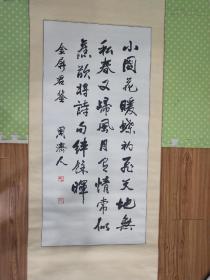 小園花暖蝶初飛天地無
私春又歸風月有情常似
舊欲將詩句絆餘暉
金屏君鉴 周濟人